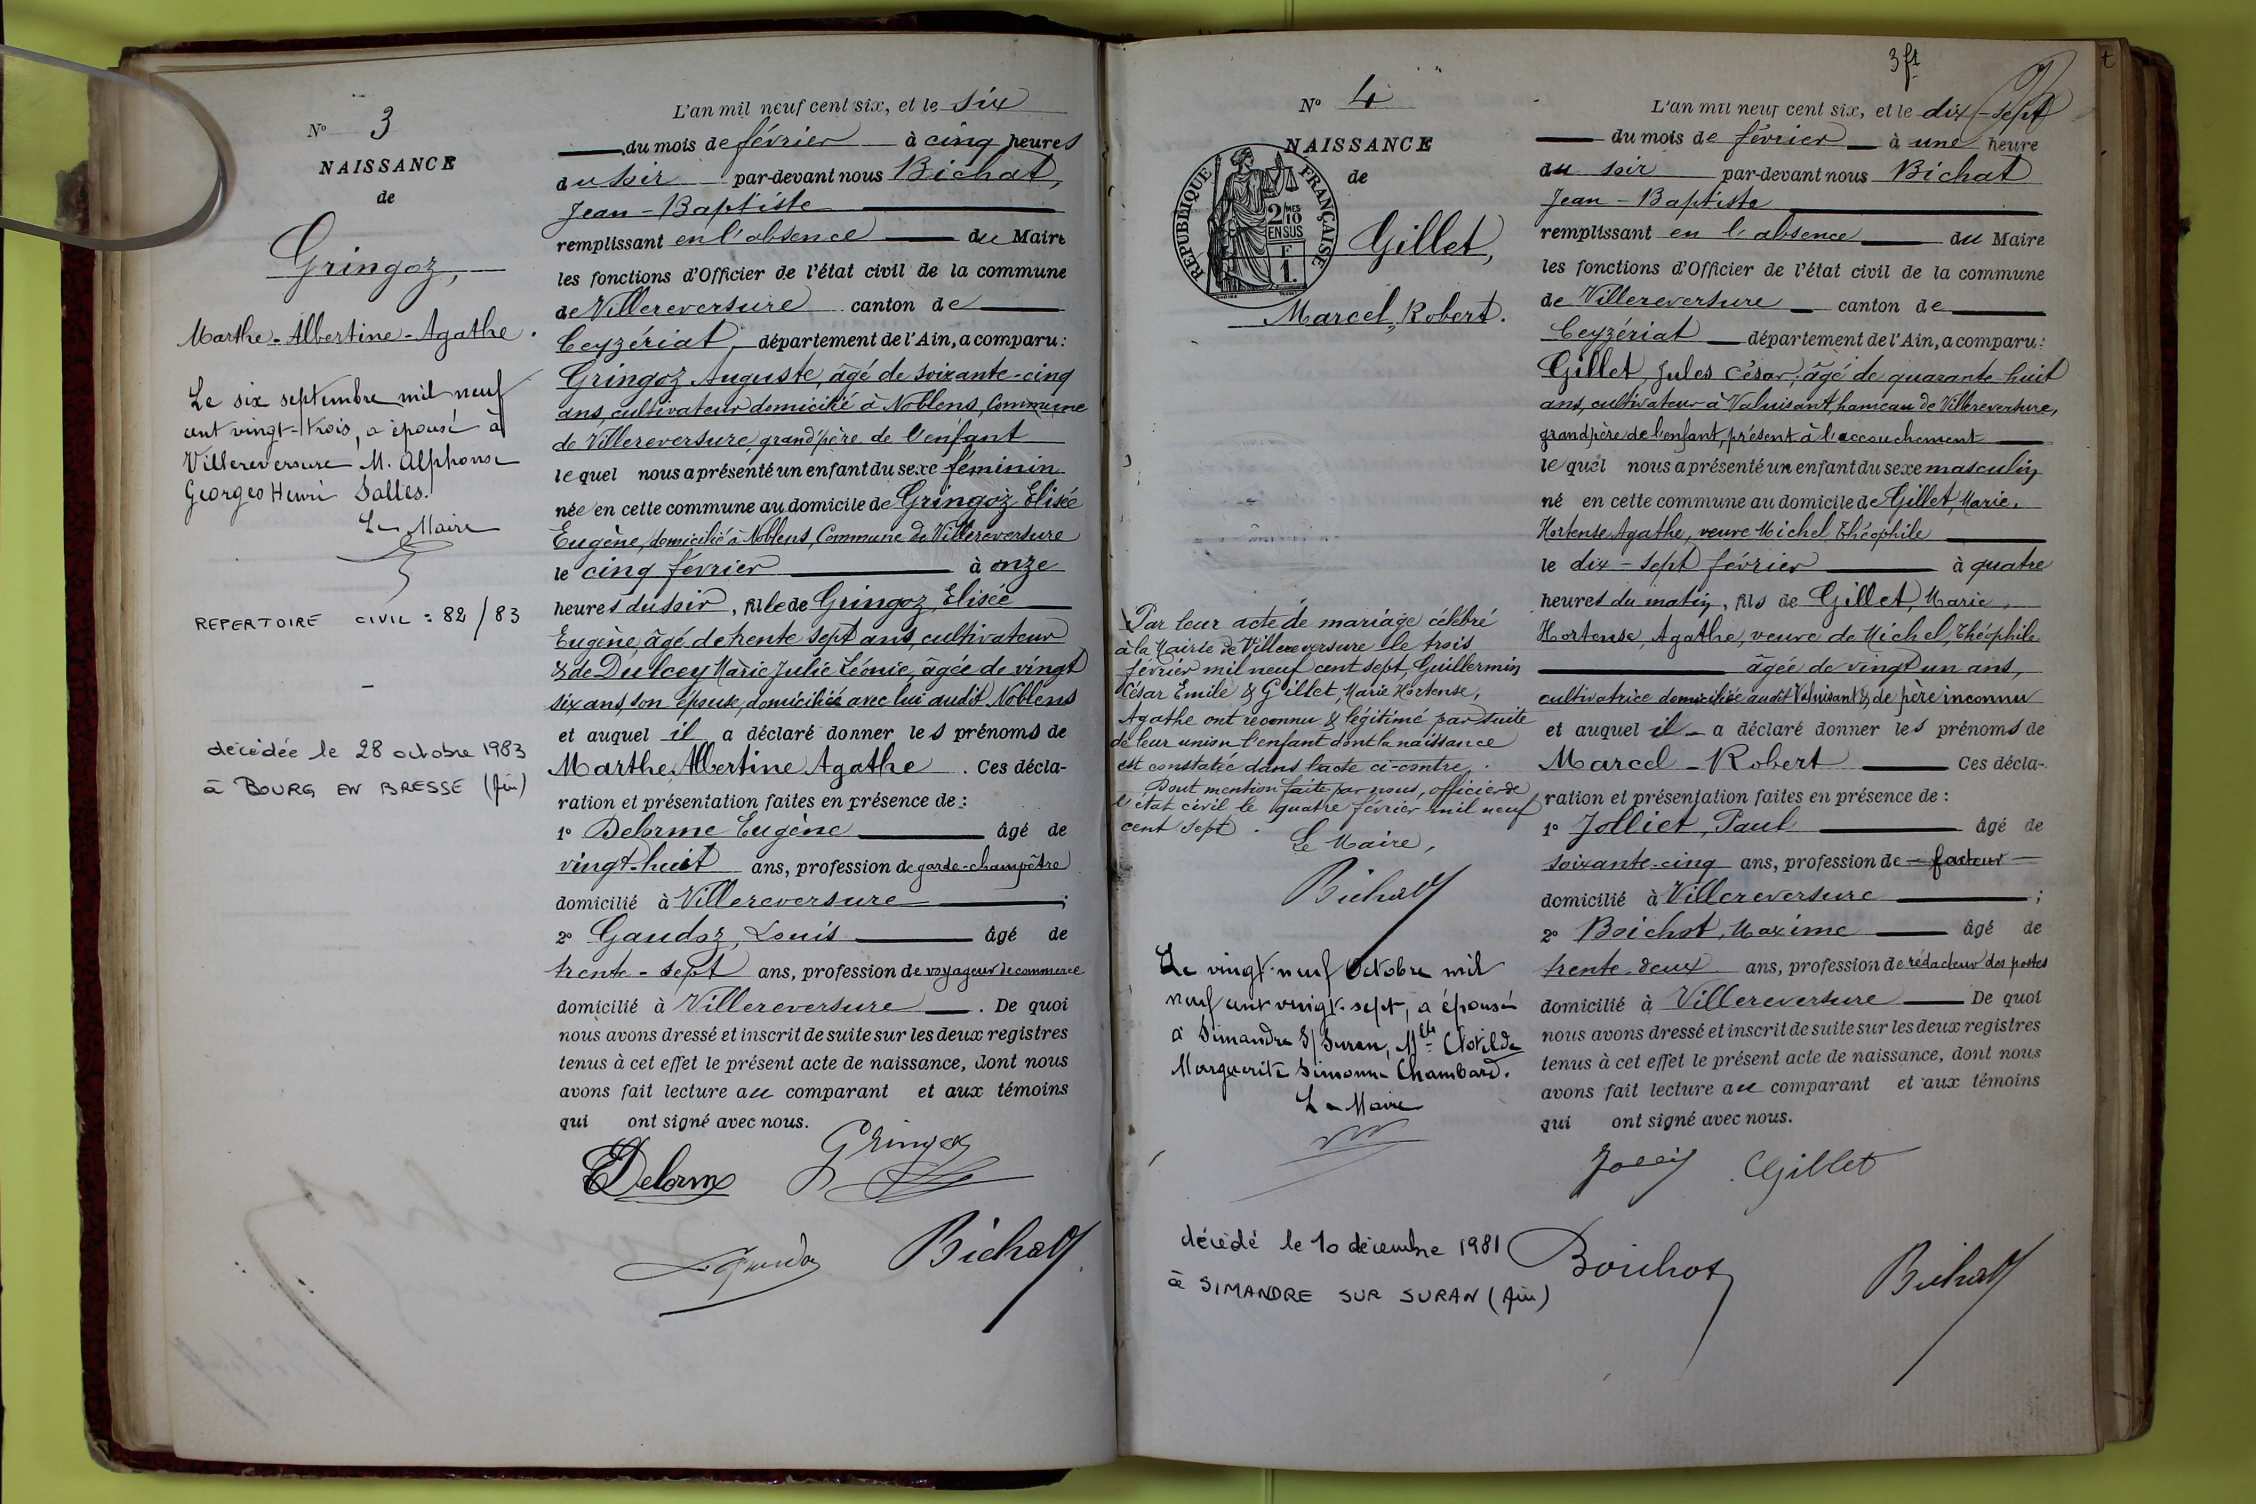 N° 3
NAISSANCE
de
Gringoz,
Marthe-Albertine-Agathe.
Le six septembre mil neuf
cent vingt-trois, a épousé à
Villereversure M. Alphonse
Georges Henri Salles.
Le Maire
REPERTOIRE CIVIL : 82/83
décédée le 28 octobre 1983
à BOURG EN BRESSE (Ain)
L'an mil neuf cent six, et le six
du mois de février à cinq heures
du soir par-devant nous Bichat,
Jean-Baptiste
remplissant en l'absence du Maire
les fonctions d'Officier de l'état civil de la commune
de Villereversure canton de
Ceyzériat département de l'Ain, a comparu :
Gringoz Auguste, âgé de soixante-cinq
ans, cultivateur domicilié à Noblens, Commune
de Villereversure, grand'père de l'enfant
le quel nous a présenté un enfant du sexe féminin
née en cette commune au domicile de Gringoz Elisée
Eugène, domicilié à Noblens, Commune de Villereversure
le cinq février à onze
heures du soir, fille de Gringoz, Elisée
Eugène, âgé de trente sept ans, cultivateur
& de Dulcey Marie Julie Léonie, âgée de vingt
six ans, son épouse, domiciliée avec lui audit Noblens
et auquel il a déclaré donner les prénoms de
Marthe, Albertine Agathe. Ces décla-
ration et présentation faites en présence de :
1° Delorme Eugène âgé de
vingt-huit ans, profession de garde-champêtre
domicilié à Villereversure ;
2° Gaudoz, Louis âgé de
trente-sept ans, profession de voyageur de commerce
domicilié à Villereversure. De quoi
nous avons dressé et inscrit de suite sur les deux registres
tenus à cet effet le présent acte de naissance, dont nous
avons fait lecture au comparant et aux témoins
qui ont signé avec nous.
Gringoz
Delorme
L. Gaudoz
Bichat
3 ft
t
N° 4
NAISSANCE
de
REPUBLIQUE FRANÇAISE
2/10 MES
EN SUS
F
1.
Gillet,
Marcel, Robert.
Par leur acte de mariage célébré
à la Mairie de Villereversure le trois
février mil neuf cent sept, Guillermin
César Emile & Gillet, Marie Hortense,
Agathe ont reconnu & légitimé par suite
de leur union l'enfant dont la naissance
est constatée dans l'acte ci-contre.
Dont mention faite par nous, officier de
l'état civil le quatre février mil neuf
cent sept.
Le Maire,
Bichat
Le vingt-neuf Octobre mil
neuf cent vingt-sept, a épousé
à Simandre S/Suran, Mlle Clotilde
Marguerite Simonne Chambard.
Le Maire
décédé le 10 décembre 1981
à SIMANDRE SUR SURAN (Ain)
L'an mil neuf cent six, et le dix-sept
du mois de février à une heure
du soir par-devant nous Bichat
Jean-Baptiste
remplissant en l'absence du Maire
les fonctions d'Officier de l'état civil de la commune
de Villereversure canton de
Ceyzériat département de l'Ain, a comparu :
Gillet, Jules César, âgé de quarante huit
ans, cultivateur à Valuisant, hameau de Villereversure,
grand père de l'enfant, présent à l'accouchement
le quel nous a présenté un enfant du sexe masculin
né en cette commune au domicile de Gillet, Marie,
Hortense, Agathe, veuve Michel Théophile
le dix-sept février à quatre
heures du matin, fils de Gillet, Marie,
Hortense, Agathe, veuve de Michel, Théophile
âgée de vingt un ans,
cultivatrice domiciliée audit Valuisant & de père inconnu
et auquel il a déclaré donner les prénoms de
Marcel-Robert Ces décla-
ration et présentation faites en présence de :
1° Jolliet, Paul âgé de
soixante-cinq ans, profession de facteur
domicilié à Villereversure ;
2° Boichot, Maxime âgé de
trente-deux ans, profession de rédacteur des postes
domicilié à Villereversure De quoi
nous avons dressé et inscrit de suite sur les deux registres
tenus à cet effet le présent acte de naissance, dont nous
avons fait lecture au comparant et aux témoins
qui ont signé avec nous.
Gillet
Boichot
Bichat